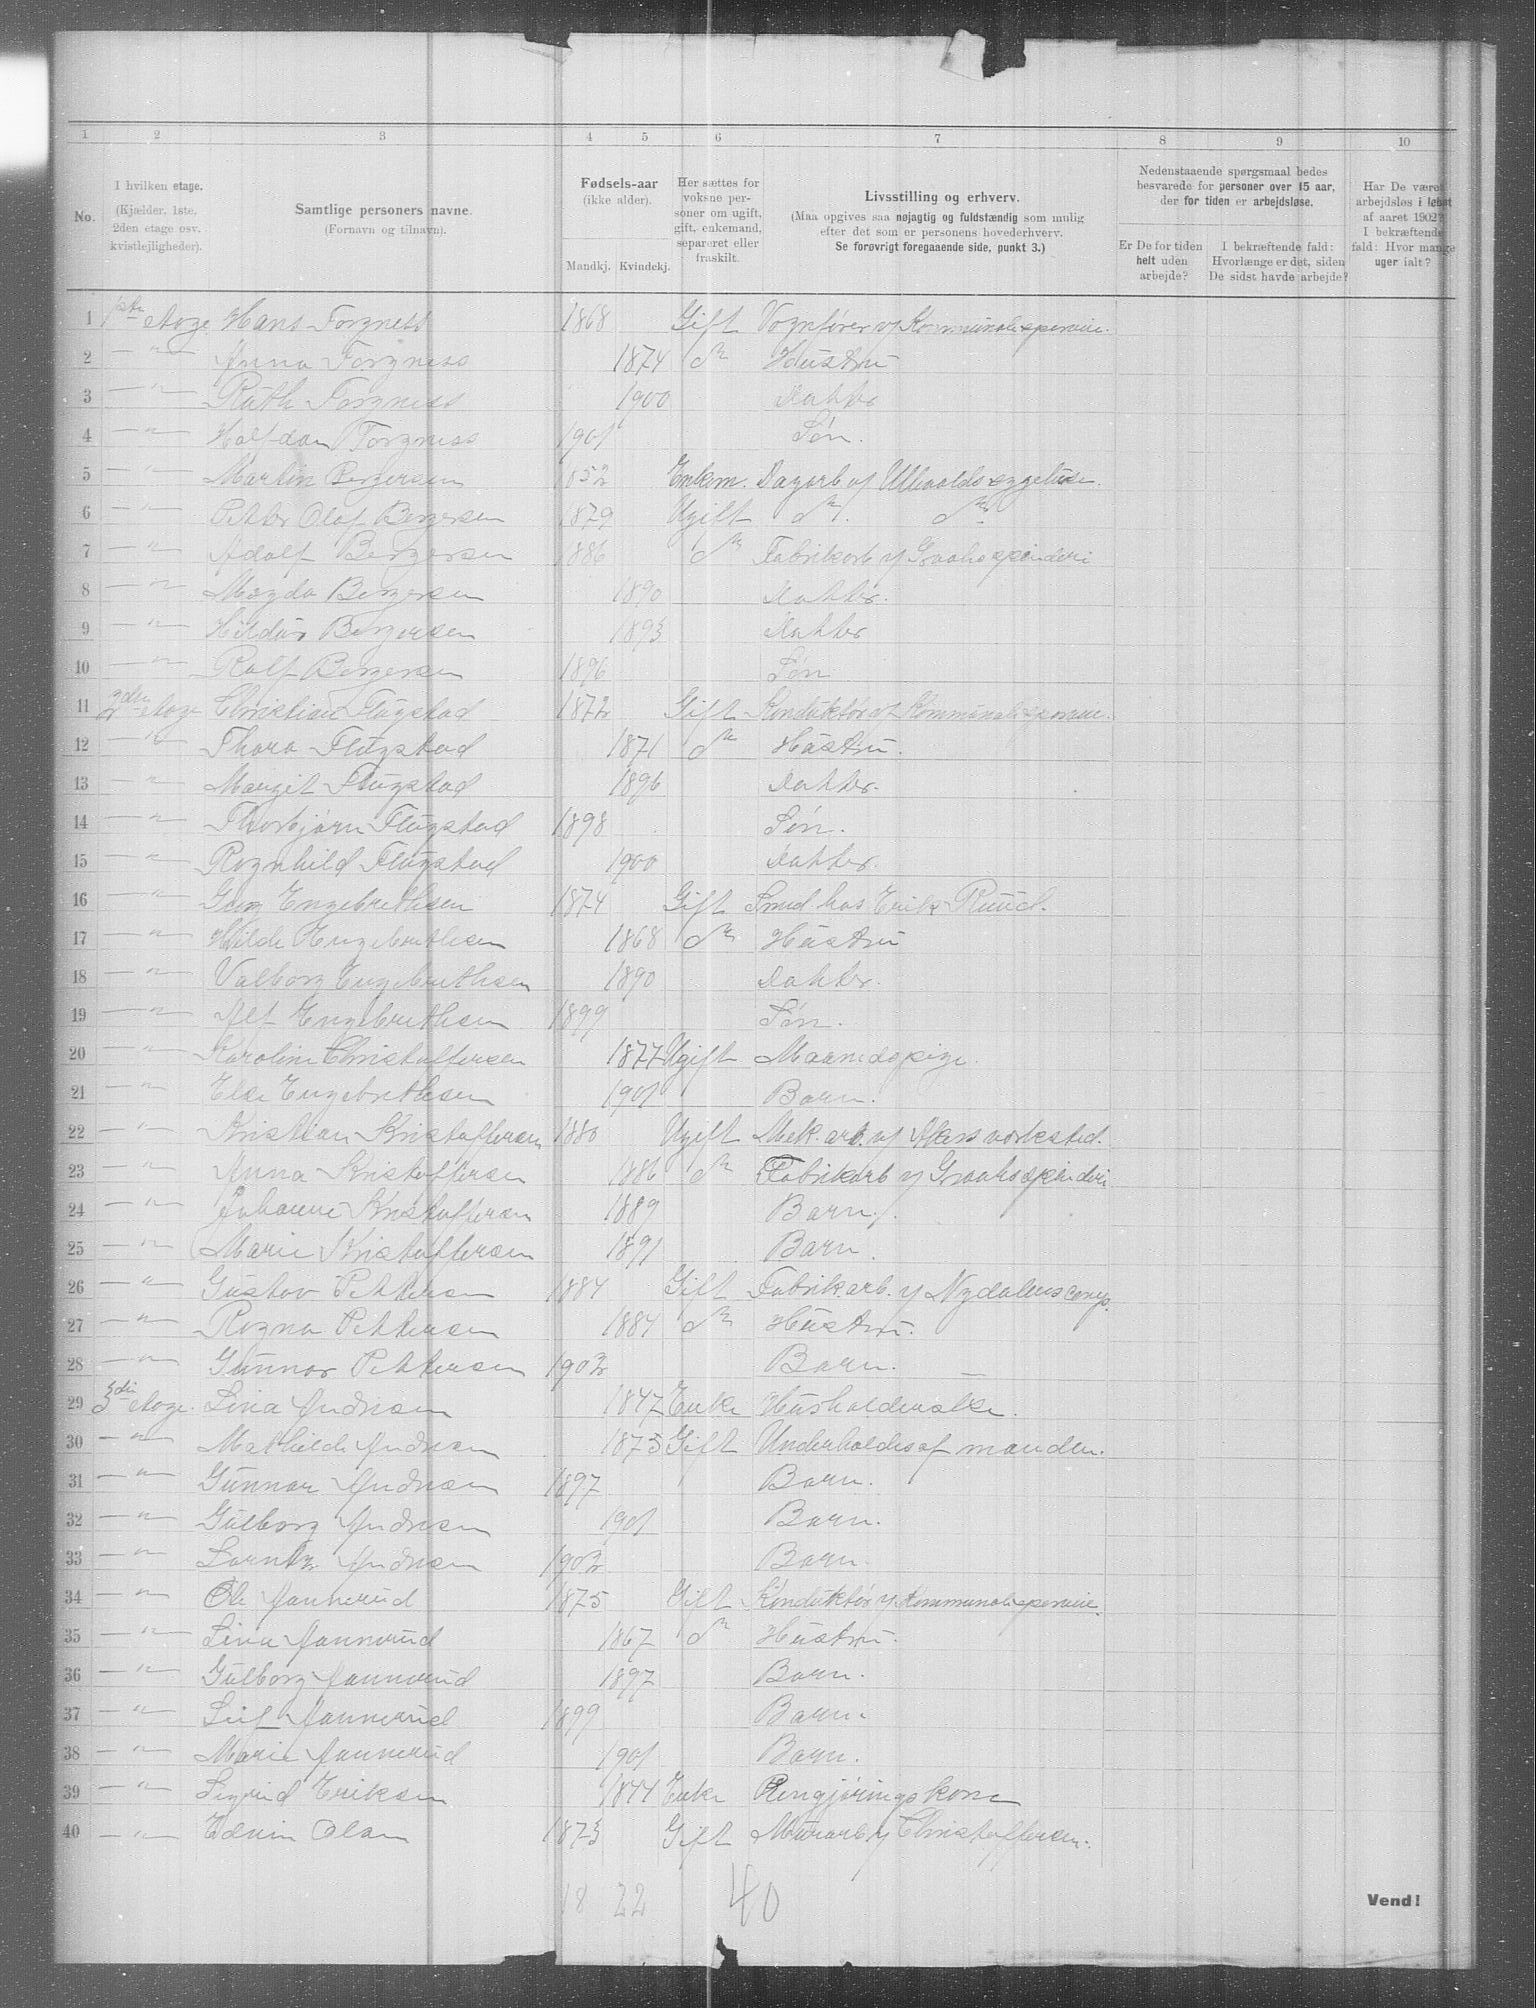 1 2 3 4 5 6 7 8 9 10
No.
I hvilken etage.
(Kjælder, 1ste,
2den etage osv.
kvistlejligheder).
Samtlige personers navne.
(Fornavn og tilnavn).
Fødsels-aar
(ikke alder).
Mandkj. Kvindekj.
Her sættes for
voksne per-
soner om ugift,
gift, enkemand,
separeret eller
fraskilt.
Livsstilling og erhverv.
(Maa opgives saa nøjagtig og fuldstændig som mulig
efter det som er personens hovederhverv.
Se forøvrigt foregaaende side, punkt 3.)
Nedenstaaende spørgsmaal bedes
besvarede for personer over 15 aar,
der for tiden er arbejdsløse.
Er De for tiden
helt uden
arbejde?
I bekræftende fald:
Hvorlænge er det, siden
De sidst havde arbejde?
Har De været
arbejdsløs i løbet
af aaret 1902?
I bekræftende
fald: Hvor mange
uger ialt?
1 1ste etage Hans Torgness 1868 Gift Vognfører v Kommunalesporveie.
2 — " — Anna Torgness 1874 do Hustru
3 — " — Ruth Torgness 1900 Datter
4 — " — Halfdan Torgness 1901 Søn.
5 — " — Martin Bergersen 1852 Enkem. Dagarb v Ullevaalds sygehus.
6 — " — Petter Olaf Bergersen 1879 Ugift do. do
7 — " — Adolf Bergersen 1886 do Fabrikarb v Graahsspinderi
8 — " — Magda Bergersen 1890 Datter.
9 — " — Hildur Bergersen 1893 Datter
10 — " — Rolf Bergersen 1896 Søn
11 2den etage Christian Flugstad 1872 Gift Konduktør v Kommunalesporveie.
12 — " — Thora Flugstad 1871 do Hustru.
13 — " — Margit Flugstad 1896 Datter.
14 — " — Thorbjørn Flugstad 1898 Søn.
15 — " — Ragnhild Flugstad 1900 Datter.
16 — " — Engebrethsen 1874 Gift Smed hos Erik Ruud.
17 — " — Hilda Engebrethsen 1868 do Hustru
18 — " — Valborg Engebrethsen 1890 Datter.
19 — " — Alf Engebrethsen 1899 Søn.
20 — " — Karoline Christoffersen 1877 Ugift Maanedspige.
21 — " — Else Engebrethsen 1901 Barn.
22 — " — Kristian Kristoffersen 1880 Ugift Mek. arb. v Akers værksted.
23 — " — Anna Kristoffersen 1886 do Fabrikarb v Graahsspinderi
24 — " — Johanne Kristoffersen 1889 Barn.
25 — " — Marie Kristoffersen 1891 Barn.
26 — " — Gustav Pettersen 1884 Gift Fabrikarb. v Nydalens comp.
27 — " — Ragna Pettersen 1884 do Hustru.
28 — " — Gunnar Pettersen 1902 Barn.
29 3die etage. Lina Andresen 1847 Enke Husholderske.
30 — " — Mathilde Andresen 1875 Gift Underholdes af manden.
31 — " — Gunnar Andresen 1897 Barn.
32 — " — Gulborg Andresen 1901 Barn.
33 — " — Lorntz Andresen 1902 Barn.
34 — " — Ole Jannerud 1875 Gift Konduktør v Kommunalesporveie.
35 — " — Lina Jannerud 1867 do Hustru.
36 — " — Gulborg Jannerud 1897 Barn.
37 — " — Leif Jannerud 1899 Barn.
38 — " — Marie Jannerud 1901 Barn.
39 — " — Sigrid Eriksen 1844 Enke Rengjøringskone
40 — " — Edvin Olsen 1873 Gift Murarb v Christoffersen.
18 22 40
Vend!